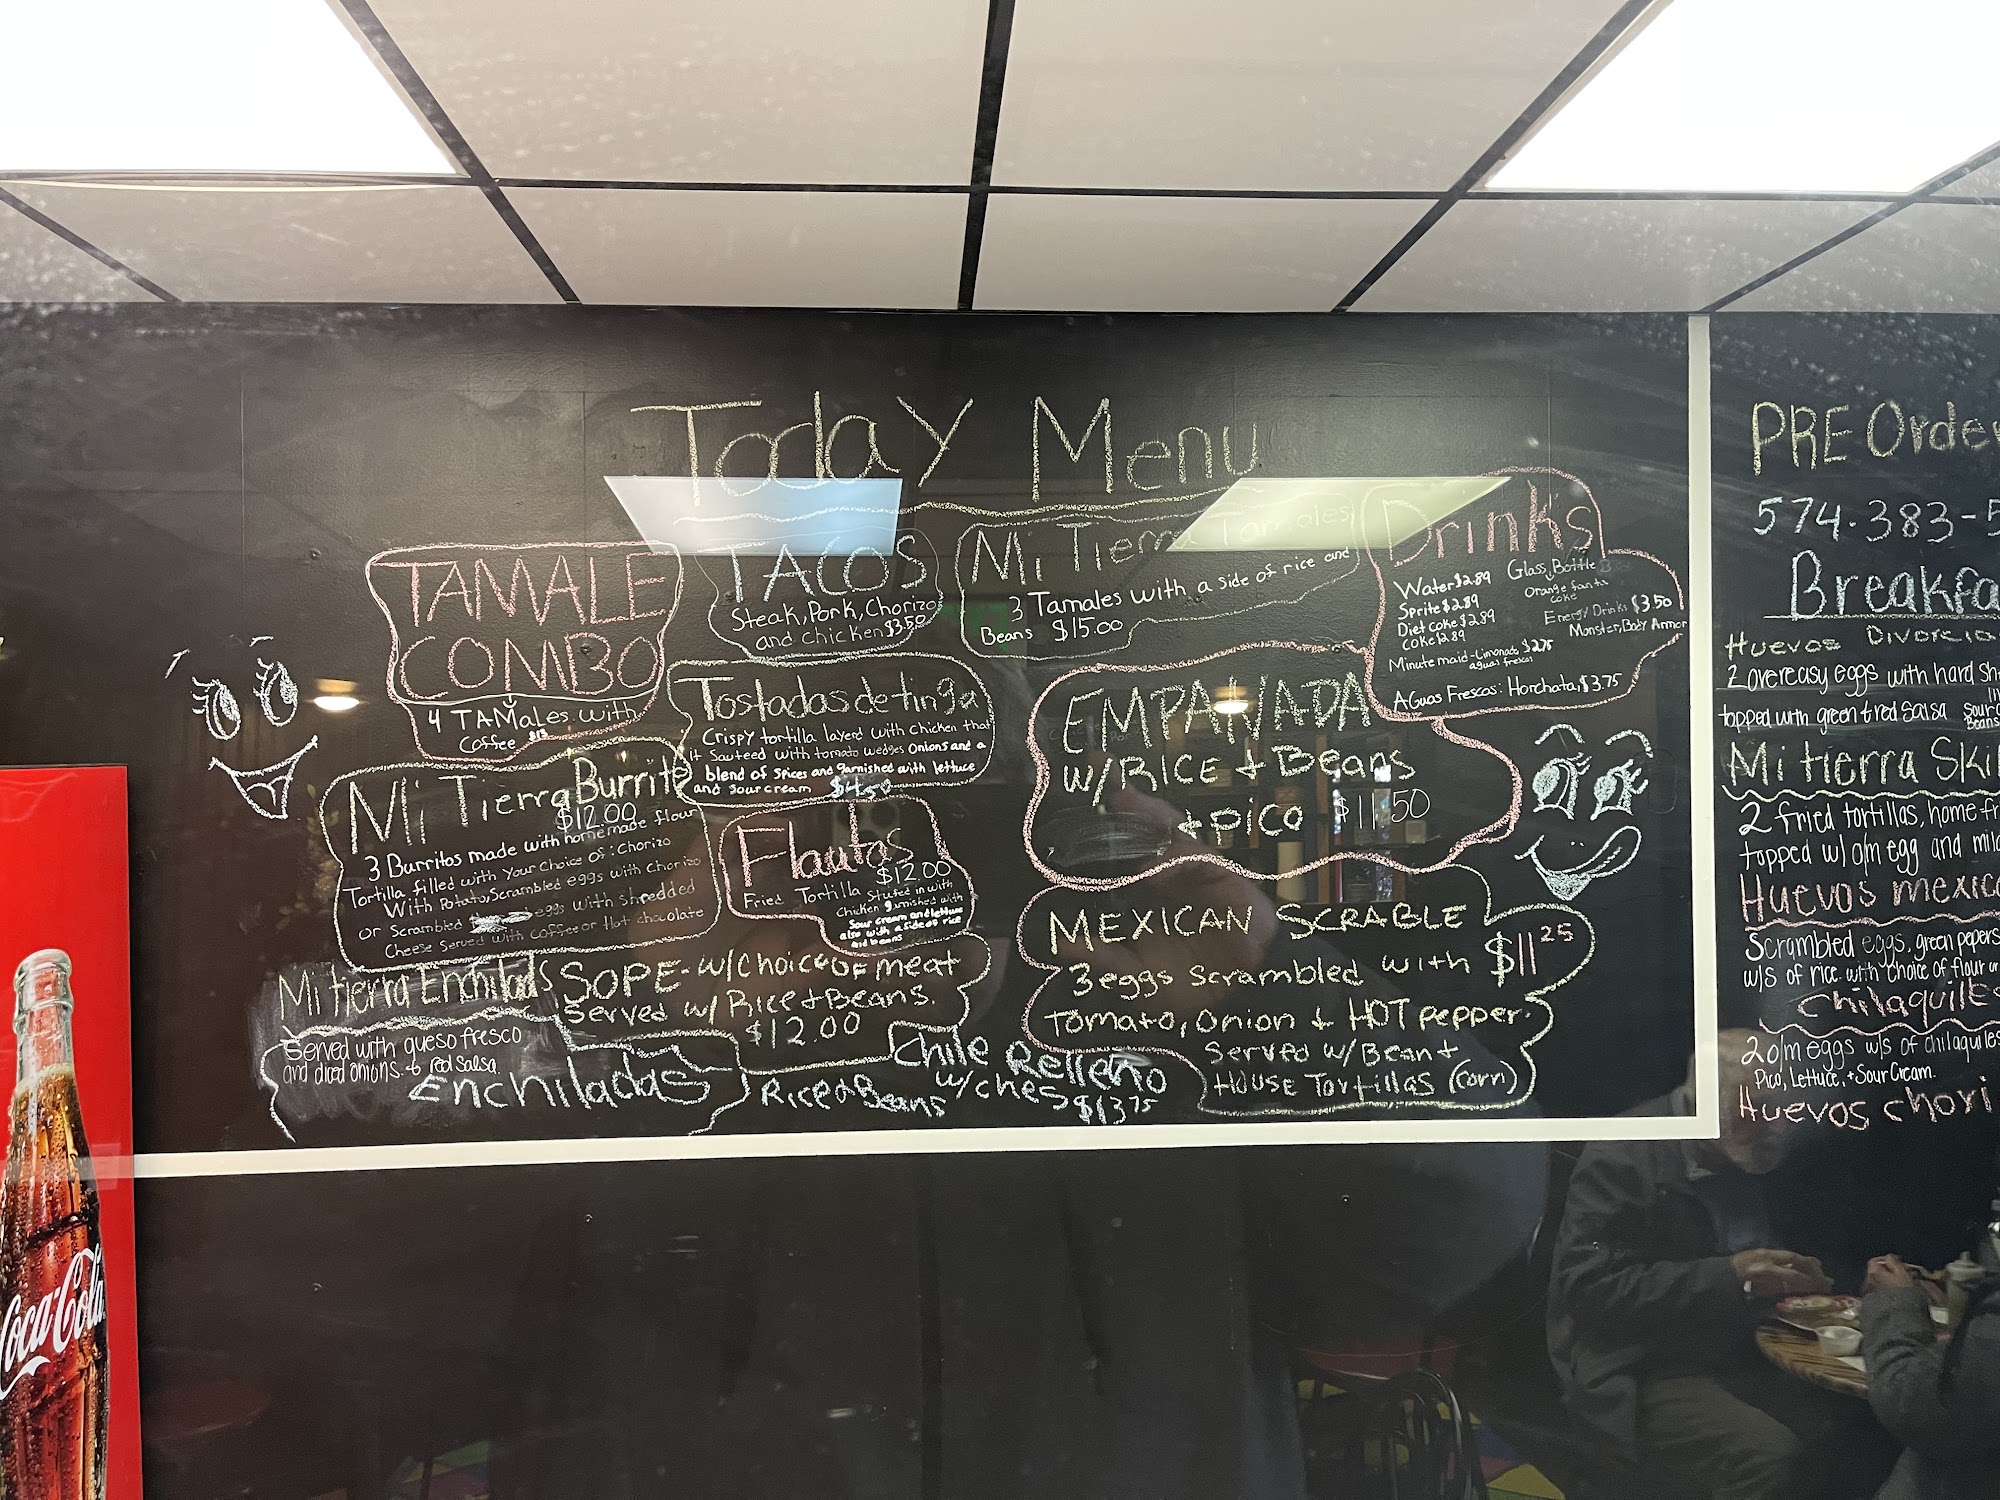 Today Menu
TAMALE
COMBO
4 TAMales with
Coffee $13
TACOS
Steak, Pork, Chorizo
and chicken $3.50
Mi Tierra Tamales
3 Tamales with a side of rice and
Beans $15.00
Drinks
Water $2.89
Sprite $2.89
Diet coke $2.89
coke $2.89
Glass, Bottle
Orange fanta
coke
Energy Drinks $3.50
Monster, Body Armor
Minute maid-Limonada $2.75
aguas frescas
AGuas Frescas: Horchata, $3.75
Tostadas de tinga
Crispy tortilla layerd with chicken that
it Sauteed with tomato wedges onions and a
blend of spices and garnished with lettuce
and sour cream $4.50
EMPANADA
W/RICE + Beans
+ pico $11.50
Mi Tierra Burrito
$12.00
3 Burritos made with homemade flour
Tortilla filled with Your Choice Of: Chorizo
With Potato, Scrambled eggs with Chorizo
or Scrambled eggs with shredded
Cheese Served with coffee or Hot chocolate
Flautas
$12.00
Fried Tortilla stuffed in with
Chicken garnished with
Sour cream and lettuce
also with a side of rice
and beans
Mi tierra Enchiladas
Served with queso fresco
and diced onions + red salsa.
Enchiladas
SOPE - w/Choice OF meat
Served w/ Rice + Beans.
$12.00
Chile Relleno
w/ches
Rice & Beans
$13.75
MEXICAN SCRABLE
3 eggs scrambled with $11.25
Tomato, Onion + HOT pepper.
Served w/Bean +
House Tortillas (corn)
PRE Order
574-383-5
Breakfa
Huevos Divorcia
2 overeasy eggs with hard sh
topped with green & red salsa
Sour C
Beans
Mi tierra Skil
2 fried tortillas, home fr
topped w/ o/m egg and mild
Huevos mexica
Scrambled eggs, green pepers
w/s of rice with choice of flour or
Chilaquile
2 o/m eggs w/s of chilaquiles
Pico, Lettuce, + Sour Cream.
Huevos chori
Coca-Cola